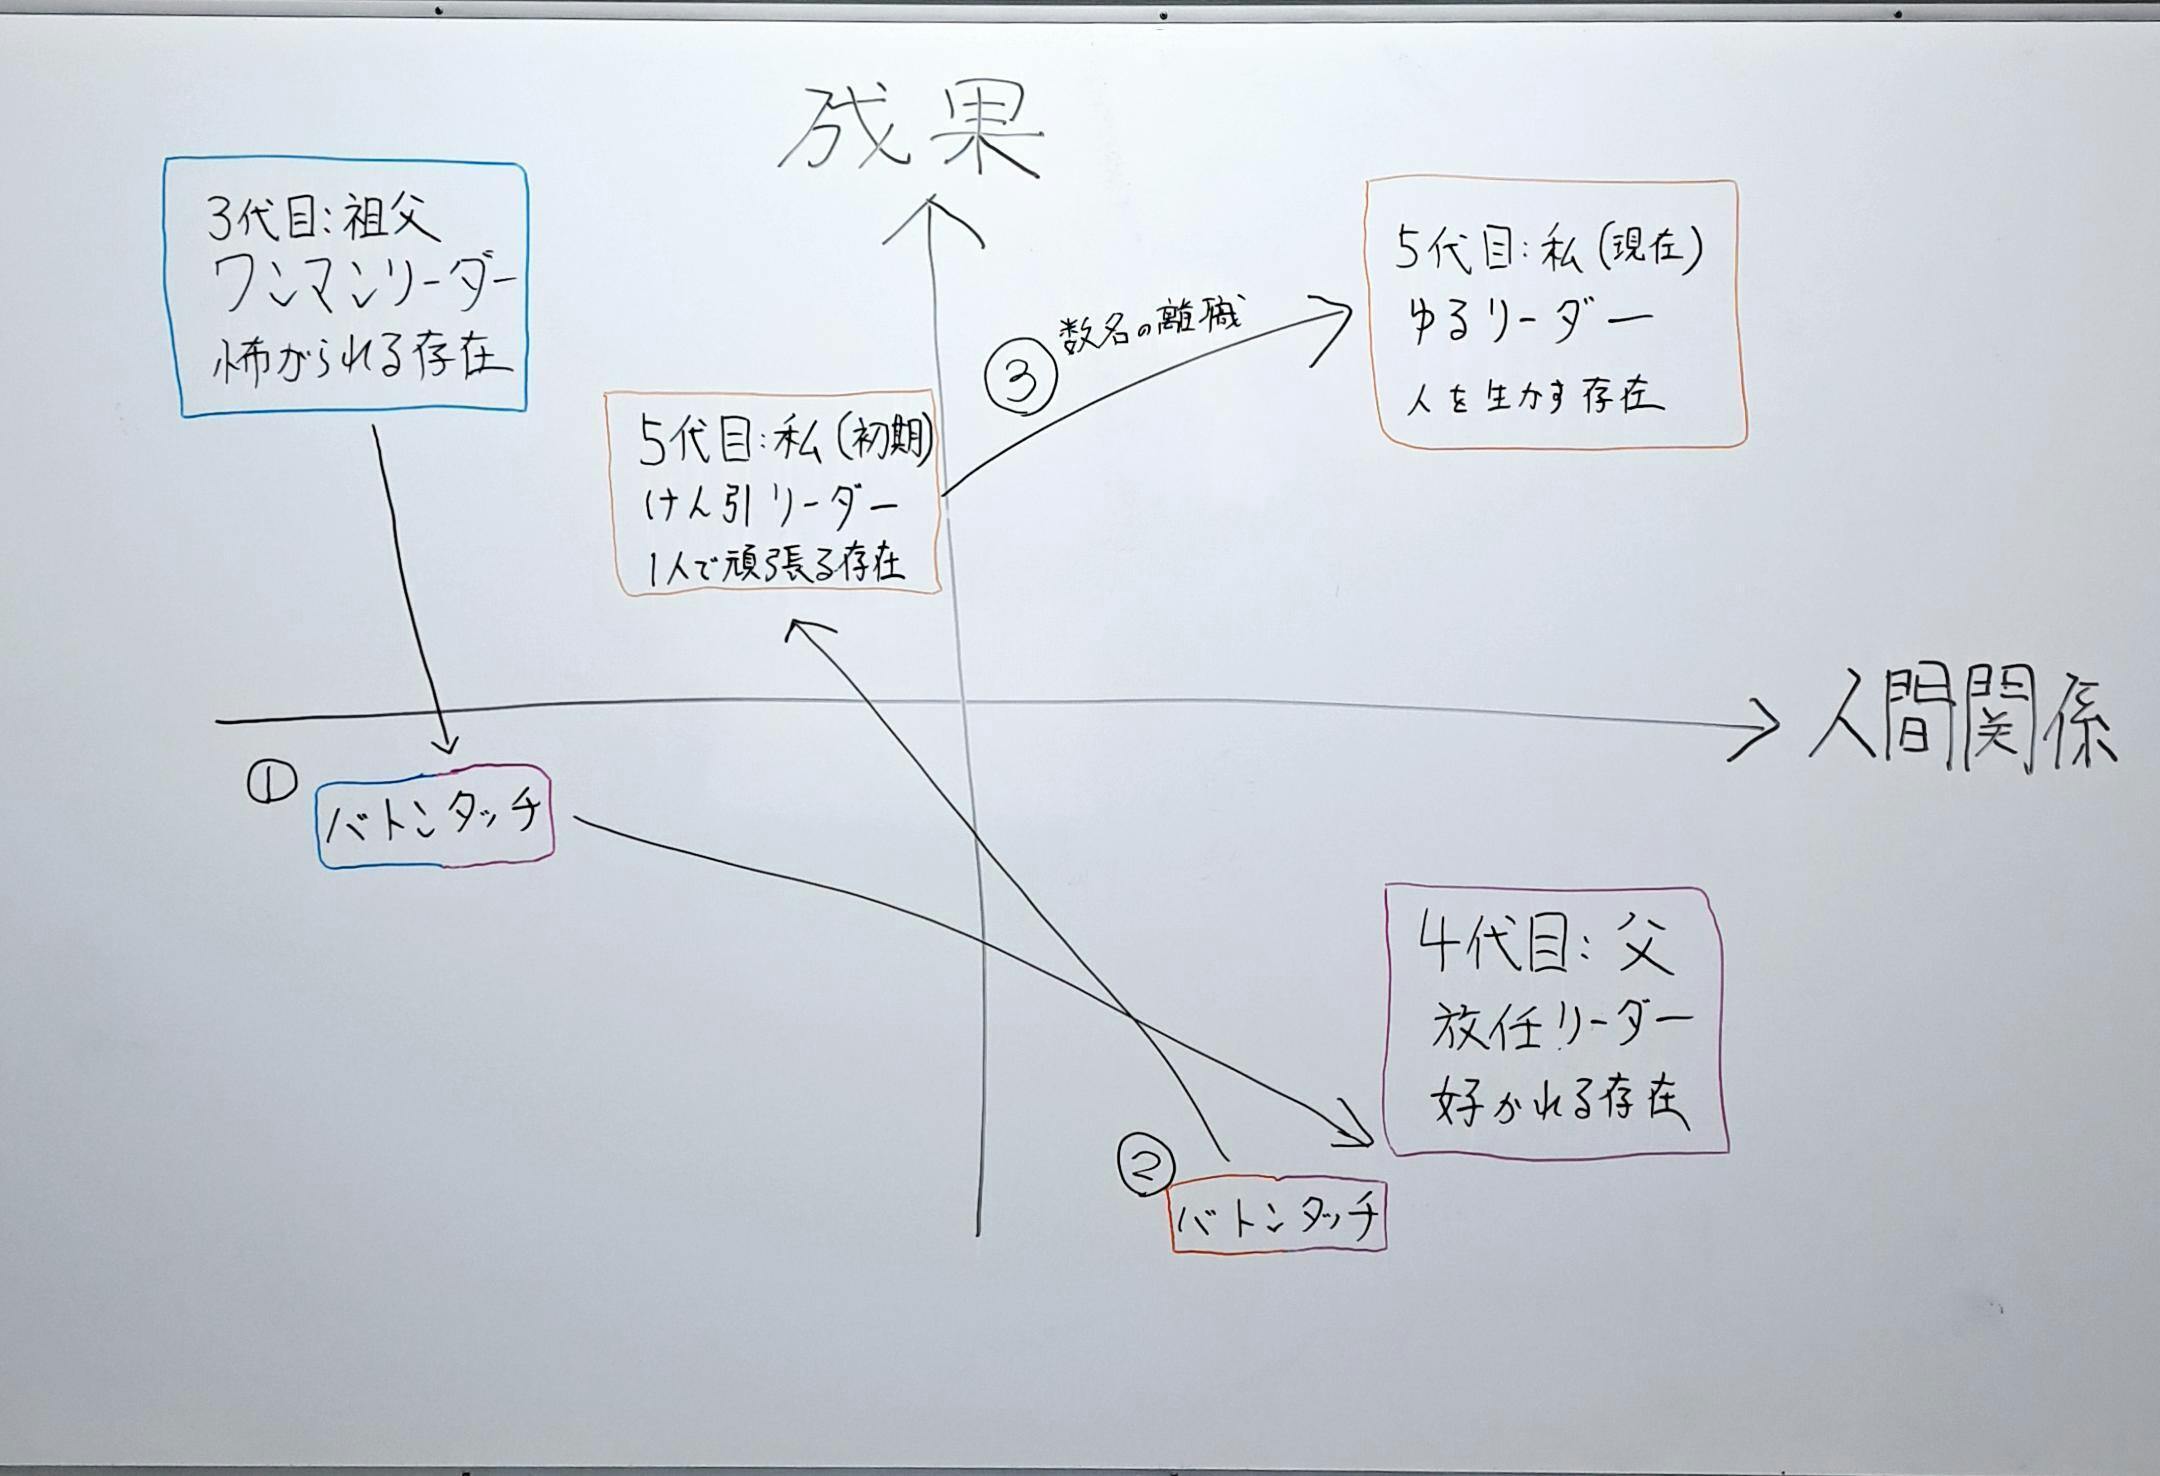 成果
3代目:祖父
ワンマンリーダー
怖がられる存在
5代目:私(現在)
ゆるリーダー
人を生かす存在
③
数名の離職
5代目:私(初期)
けん引リーダー
1人で頑張る存在
人間関係
①
バトンタッチ
4代目:父
放任リーダー
好かれる存在
②
バトンタッチ